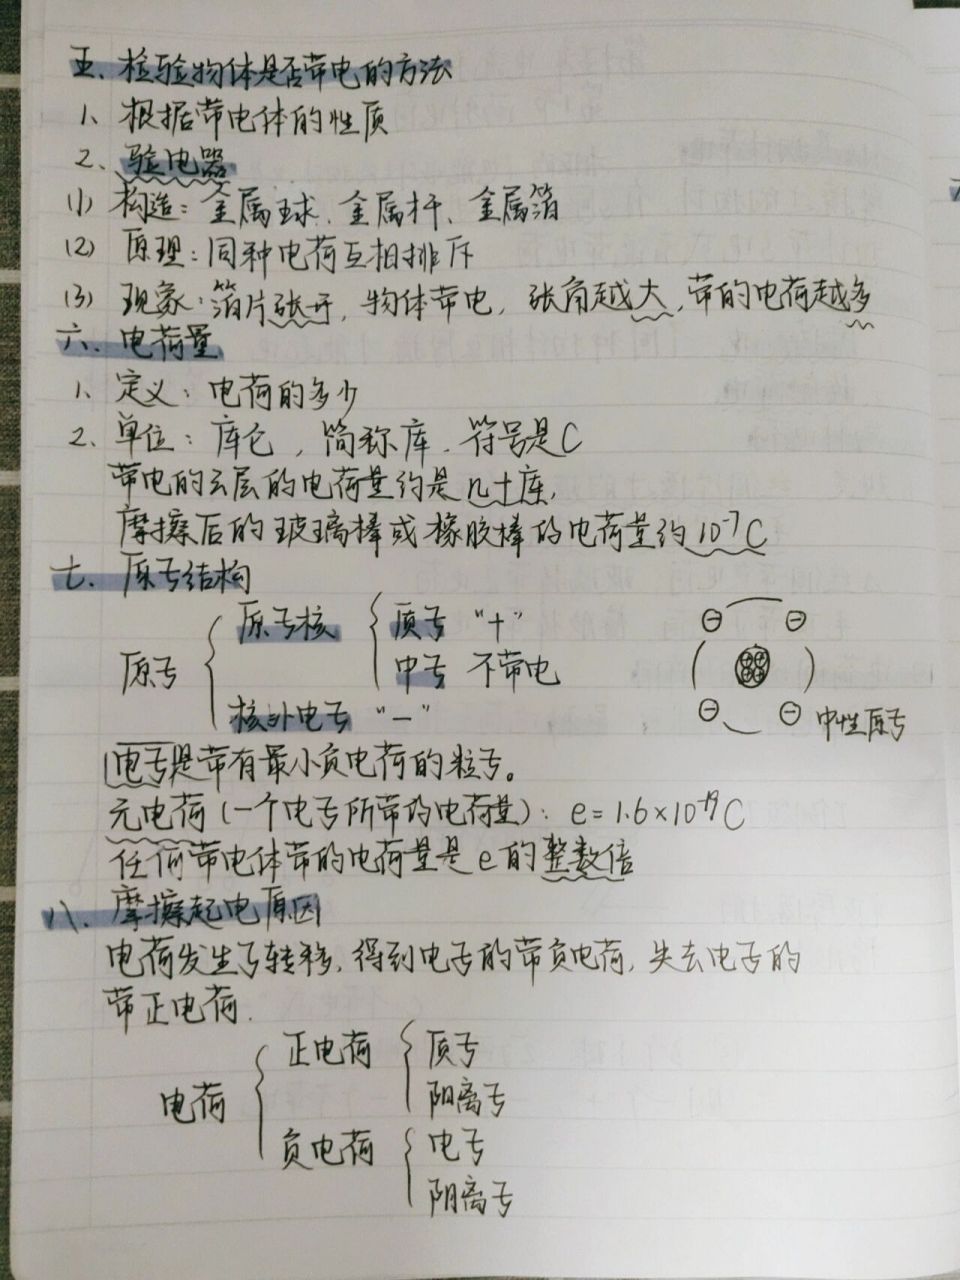 五、检验物体是否带电的方法
1、根据带电体的性质
2、验电器
(1) 构造：金属球、金属杆、金属箔
(2) 原理：同种电荷互相排斥
(3) 现象：箔片张开，物体带电，张角越大，带的电荷越多
六、电荷量
1、定义：电荷的多少
2、单位：库仑，简称库．符号是C
带电的云层的电荷量约是几十库，
摩擦后的玻璃棒或橡胶棒的电荷量约10⁻⁷C
七、原子结构
原子
原子核
质子 "+"
中子 不带电
核外电子 "－"
中性原子
电子是带有最小负电荷的粒子。
元电荷（一个电子所带的电荷量）：e=1.6×10⁻¹⁹C
任何带电体带的电荷量是e的整数倍
八、摩擦起电原因
电荷发生了转移，得到电子的带负电荷，失去电子的
带正电荷．
电荷
正电荷
质子
阳离子
负电荷
电子
阴离子